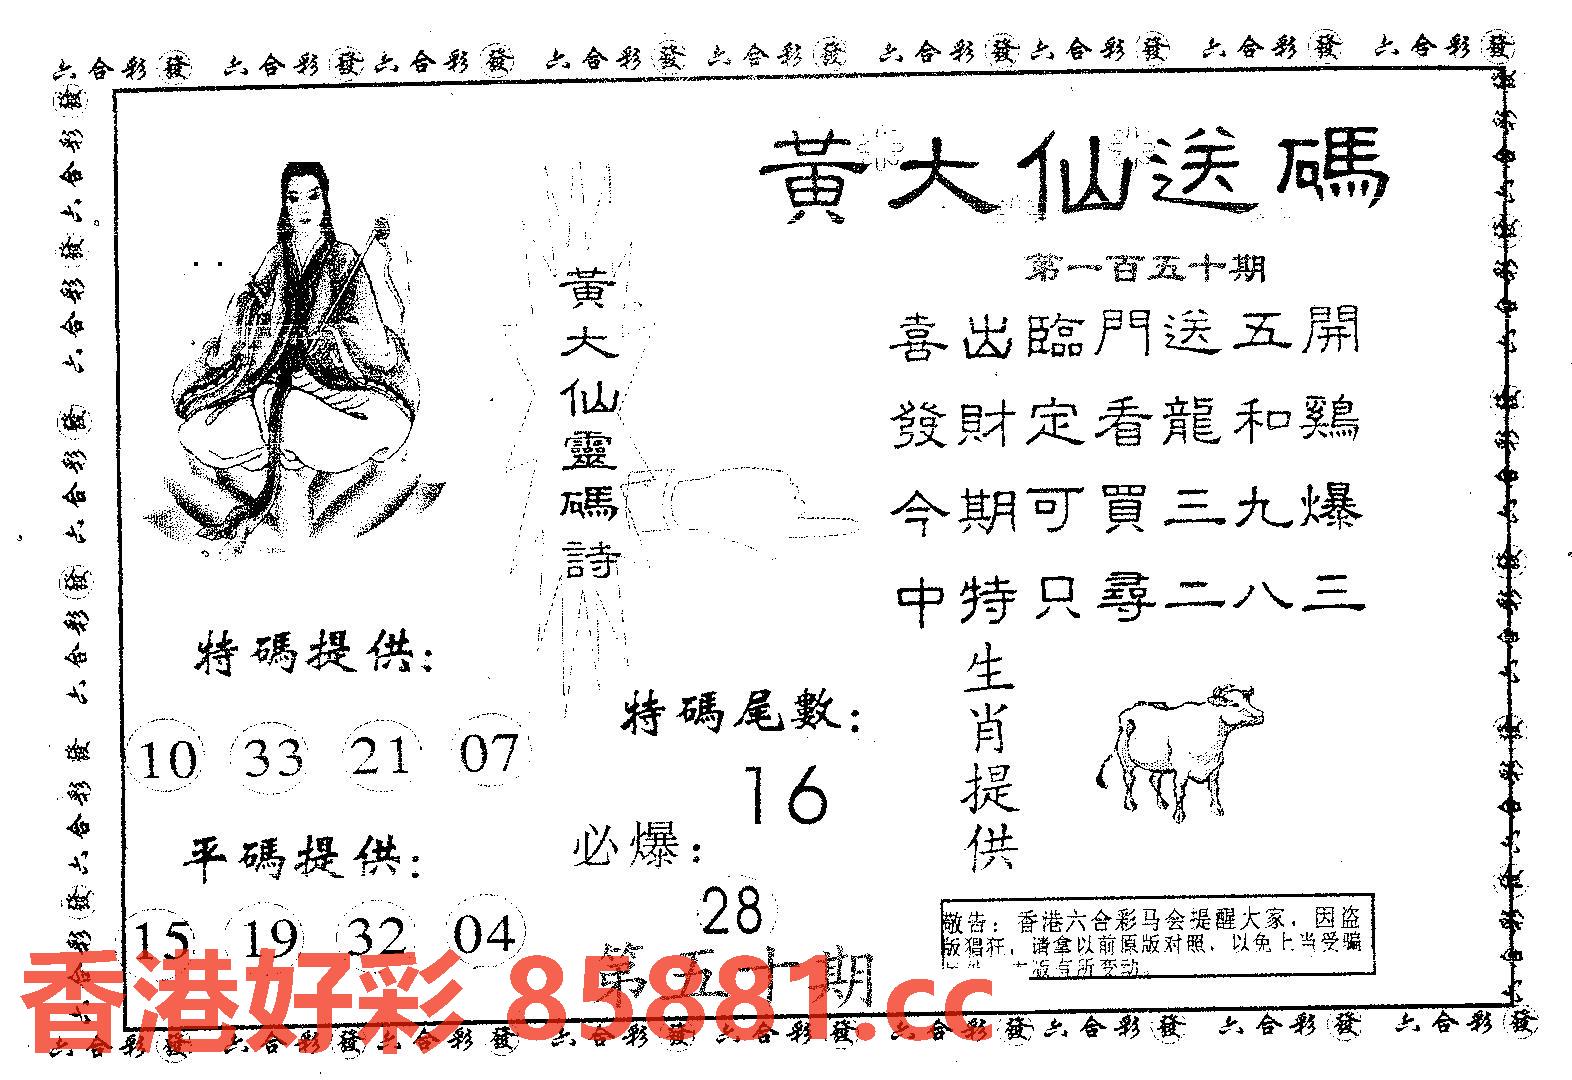 六合彩發 六合彩發 六合彩發 六合彩發 六合彩發 六合彩發 六合彩發 六合彩發 六合彩發
黃大仙送碼
第一百五十期
喜出臨門送五開
發財定看龍和鷄
今期可買三九爆
中特只尋二八三
黃大仙靈碼詩
特碼提供:
10 33 21 07
平碼提供:
15 19 32 04
特碼尾數:
16
必爆:
28
第五十期
生肖提供
敬告: 香港六合彩马会提醒大家, 因盗
版猖狂, 请拿以前原版对照, 以免上当受骗
版有所变动
香港好彩 85881.cc
六合彩發 六合彩發 六合彩發 六合彩發 六合彩發 六合彩發 六合彩發 六合彩發 六合彩發